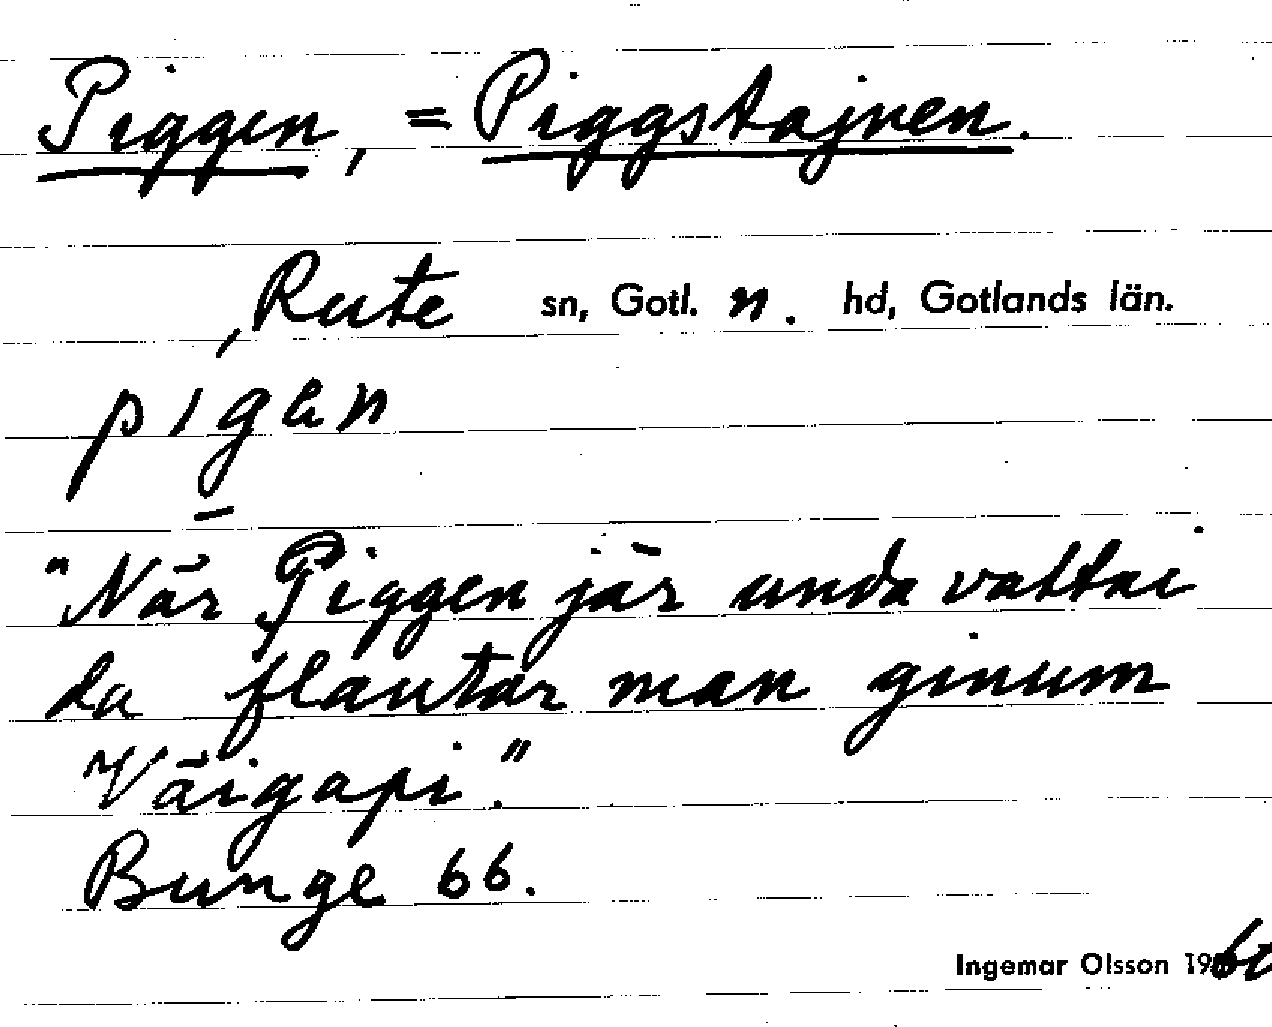 Piggen, = Piggstajnen.
Rute sn, Gotl. n. hd, Gotlands län.
pigan
"När Piggen jär unda vattni
da flautar man ginum
Väigapi."
Bunge 66.
Ingemar Olsson 19